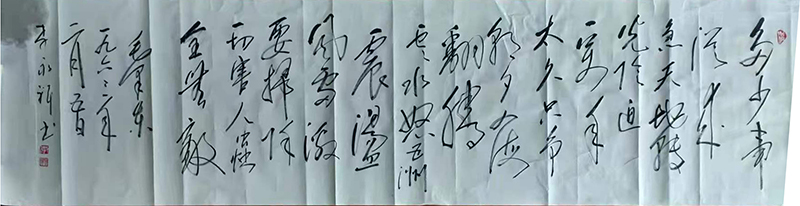 多少事
從来
急天地转
光阴迫
一万年
太久只争
朝夕四海
翻腾
云水怒五洲
震盪
风雷激
要掃除
一切害人虫
全無敵
毛泽东
一九六三年